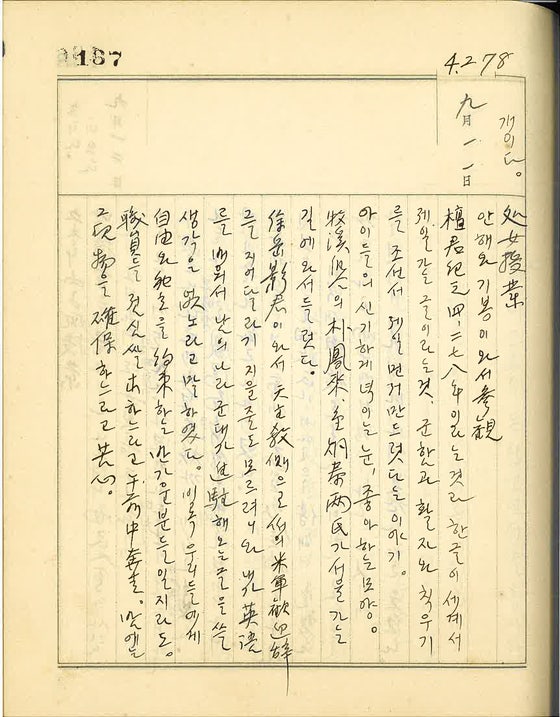 187
4.2 7 8
九月 一一日
개이다.
処女授業
안해와 기봉이 와서 參観
檀君紀元 四二七八年이라는 것과 한글이 세계서
제일 가는 글이라는 것, 군함과 활자와 측우기
를 조선서 제일 먼저 만드렷다는 이야기.
아이들의 신기하게 넉이는 눈, 좋아하는 모양.
牧溪里의 朴鳳來, 金炯泰 両氏가 서울 가는
길에 와서 들렷다.
徐岳彰君이 와서 天主敎側으로서의 米軍歓迎辞
를 지어달라기 지을 줄도 모르려니와 나는 英語
를 배워서 남의 나라 군대가 進駐해 오는 글을 쓸
생각은 없노라고 말하였다. 비록 우리들에게
自由와 独立을 約束하는 반가운 분들일지라도.
職員들 하느라고 午前中奔走. 밤에는
物을 確保하느라고 苦心.